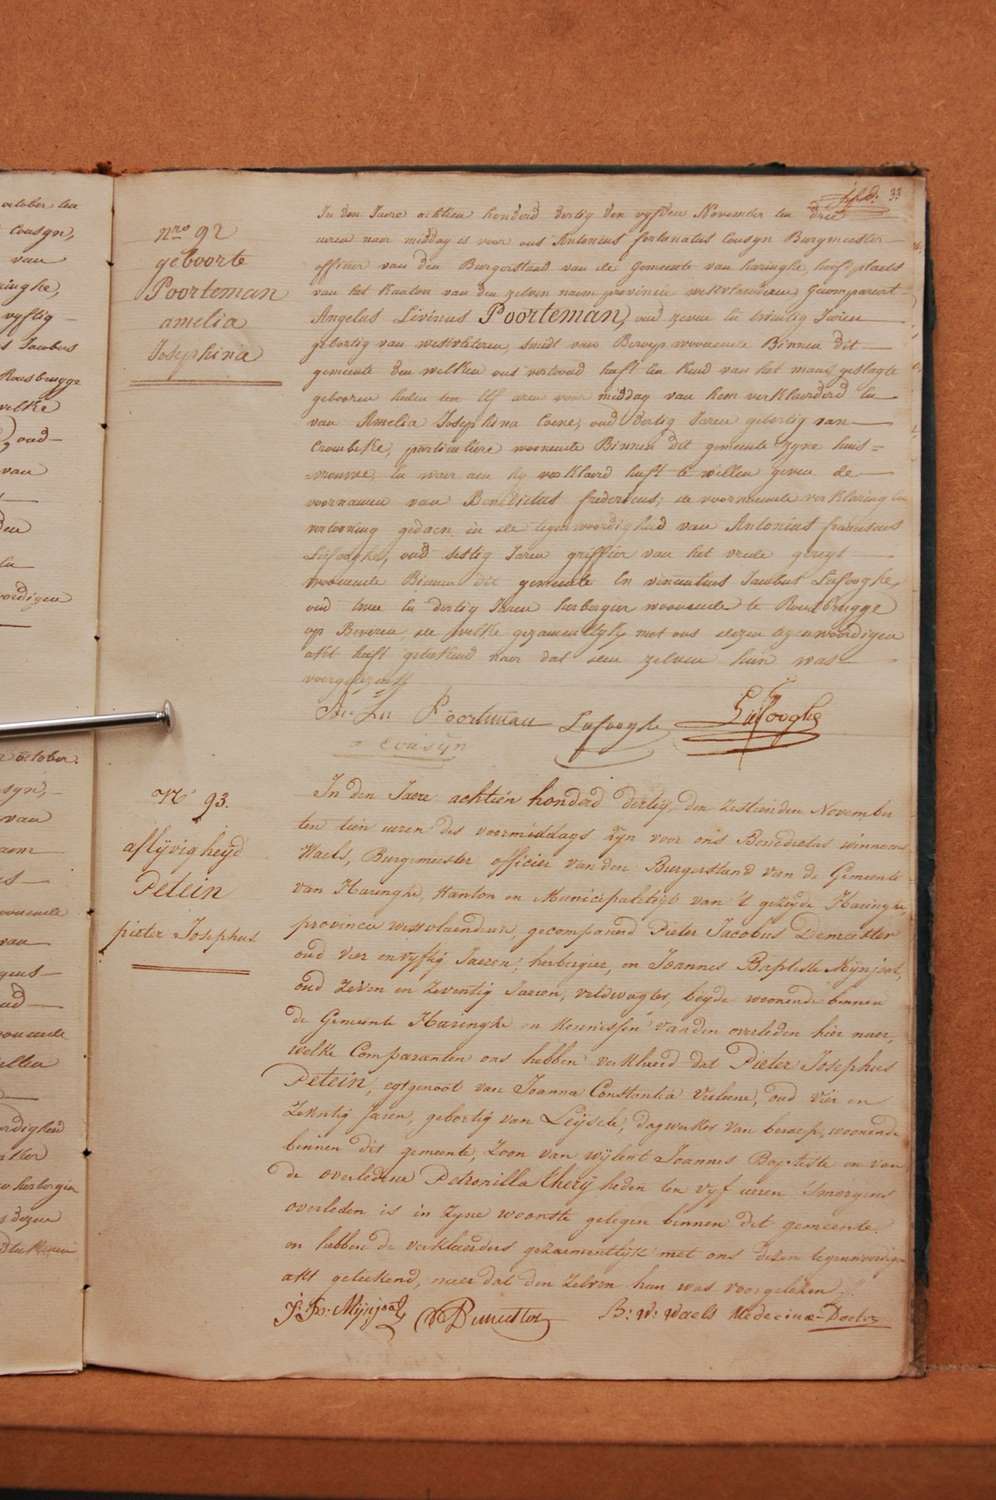 october ten
cousyn,
van
ringhe,
vyftig
s Jacobus
Roesbrugge
welke
oud
van
den
ordigen
october.
syn,
van
woonende
van
oud
woonende
willen
ordigheid
herbergier
s dezen
33
nro 92
geboorte
Poorteman
amelia
Josephina
In den Jaere achtien honderd dertig den vyfden November ten drie
uren naer middag is voor ons Antonius fortunatus Cousyn Burgmeester
officier van den Burgerstand van de Gemeente van haringhe, hoofdplaets
van het Kanton van den zelven naem provincie westvlaenderen Gecompareert
Angelus Livinus Poorteman, oud zeven en twintig Jaeren
gebortig van westvleteren, smidt van Beroep woonende Binnen dit
gemeente den welken ons vertoond heeft een kind van het mans geslagte
geboren heden ten elf uren voor middag van hem verklaerderd en
van Amelia Josephina Coene, oud dertig Jaren gebortig van
Crombeke, particuliere woonende Binnen dit gemeente zyne huis=
vrouwe, en waer aen hy verklaerd heeft te willen geven de
voornamen van Benedictus fredericus; de voornoemde verklaring en
vertooning gedaen in de tegenwoordigheid van Antonius franciscus
Lafooghe, oud sestig Jaren griffier van het vrede geregt
woonende Binnen dit gemeente En vincentius Jacobus Lafooghe,
oud twee en dertig Jaren herbergier woonende te Rousbrugge
op Beveren, de welke gezamentlyk met ons dezen tegenwoordigen
akt heeft geteekend naer dat den zelven hun was
voorgelezen
Poorteman Lafooghe Lafooghe
cousyn
No 93.
aflijvigheyd
Petein
pieter Josephus
In den Jaere achtien honderd dertig, den zesthienden November
ten tien uren des voormiddags zyn voor ons Benedictus winnocus
Waels, Burgemeester officier van den Burgerstand van de Gemeente
van Haringhe, Kanton en Municipaliteyt van 't gezeyde Haringhe,
provincie westvlaenderen, gecompareerd Pieter Jacobus Demeester
oud vier en vyftig Jaeren, herbergier, en Joannes Baptiste Mynjeot,
oud zeven en zeventig Jaeren, veldwagter, beyde woonende binnen
de Gemeente Haringhe en kennissen van den overleden hier naer,
welke Comparanten ons hebben verklaerd dat Pieter Josephus
Petein, egtgenoot van Joanna Constantia Verbeure, oud vier en
Zekstig Jaren, gebortig van Leysele, dagwerker van beroep, woonende
binnen dit gemeente, Zoon van wylent Joannes Baptiste en van
de overledene Petronilla thery heden ten vyf uren 'smorgens
overleden is in zyne woonste gelegen binnen dit gemeente.
en hebben de verklaerders gezaementlyk met ons dezen tegenwoordigen
akt geteekend, naer dat den zelven hun was voorgelezen
J. Bte. Mijnjeot Demeester B: W: Waels Medecinæ-Doctor